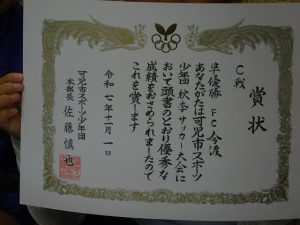 賞状
C戦
準優勝 FC今渡
あなたがたは可児市スポーツ
少年団秋季サッカー大会に
おいて頭書のとおり優秀な
成績をおさめられましたので
これを賞します
令和七年十一月一日
可児市スポーツ少年団
本部長 佐藤慎也